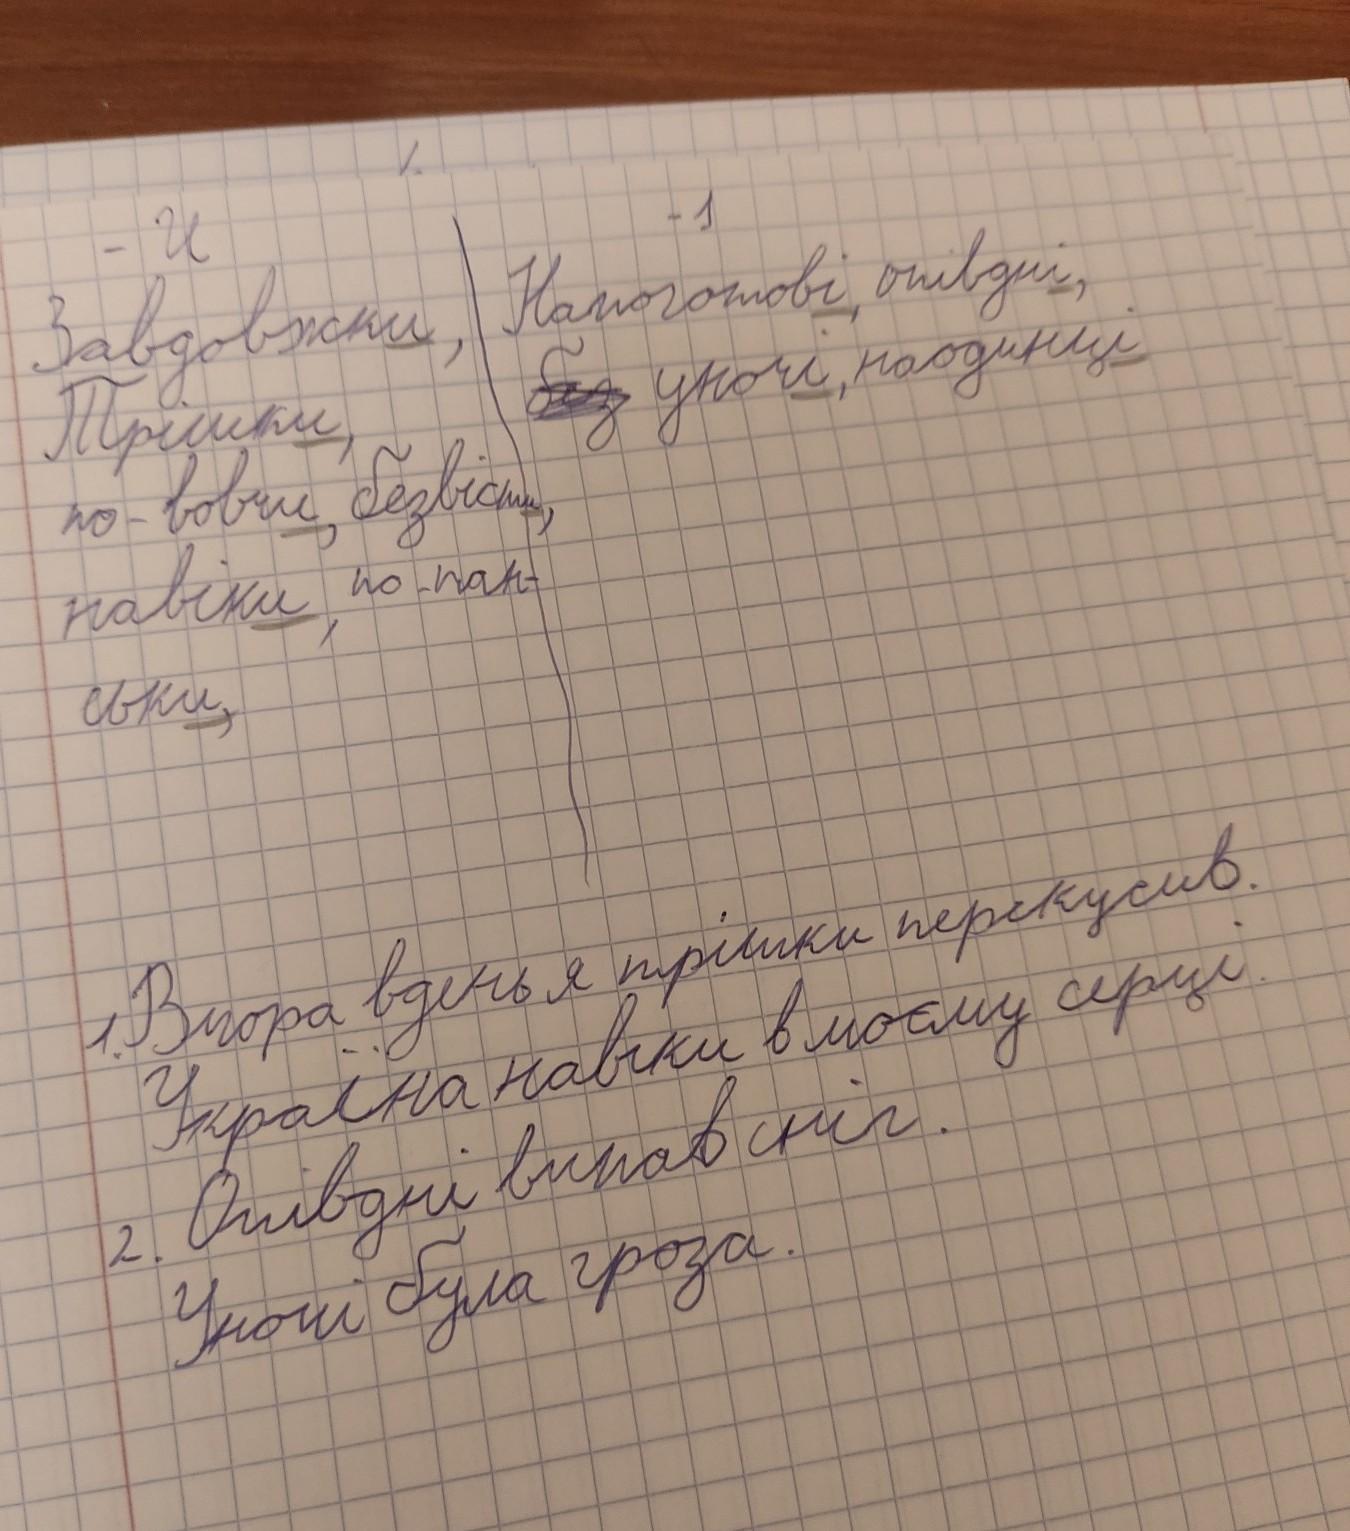 1.
- И
Завдовжки,
Трішки,
по-вовчи, безвісти,
навіки, по-пан-
ськи,
- І
Напоготові, опівдні,
без уночі, наодинці
1. Вчора вдень я трішки перекусив.
Україна навіки в моєму серці.
2. Опівдні випав сніг.
Уночі була гроза.